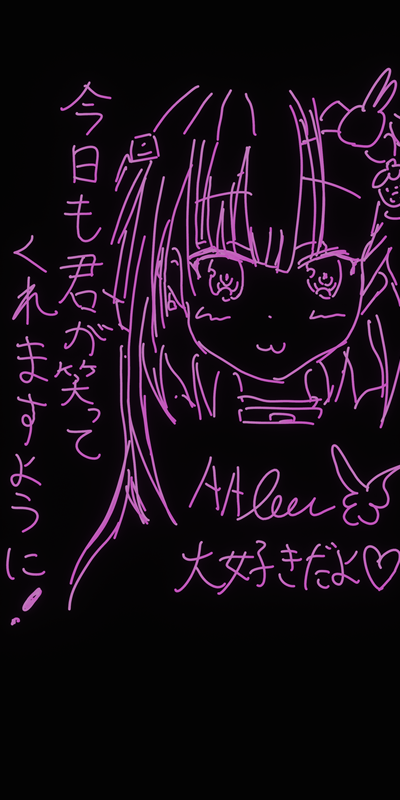 今日も君が笑って
くれますように!
大好きだよ♡